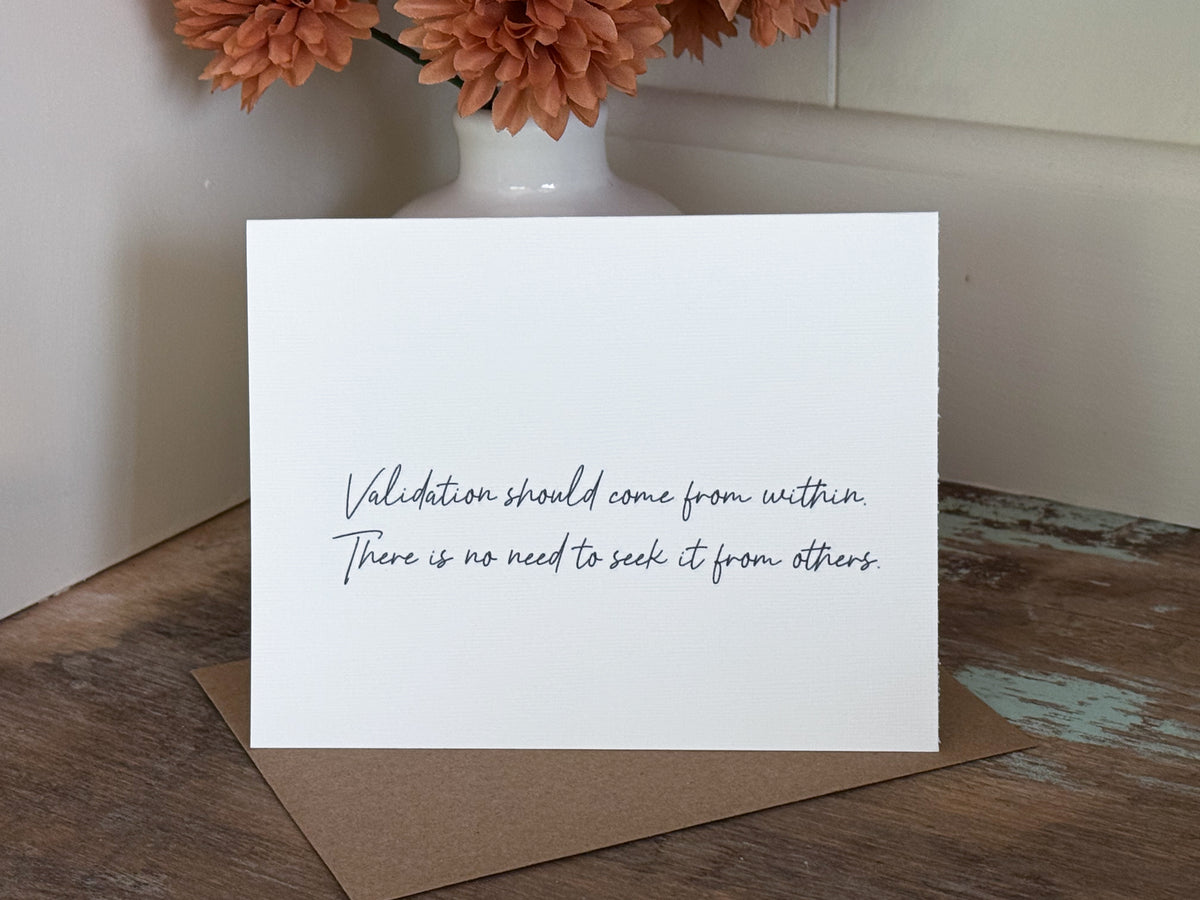 Validation should come from within.
There is no need to seek it from others.